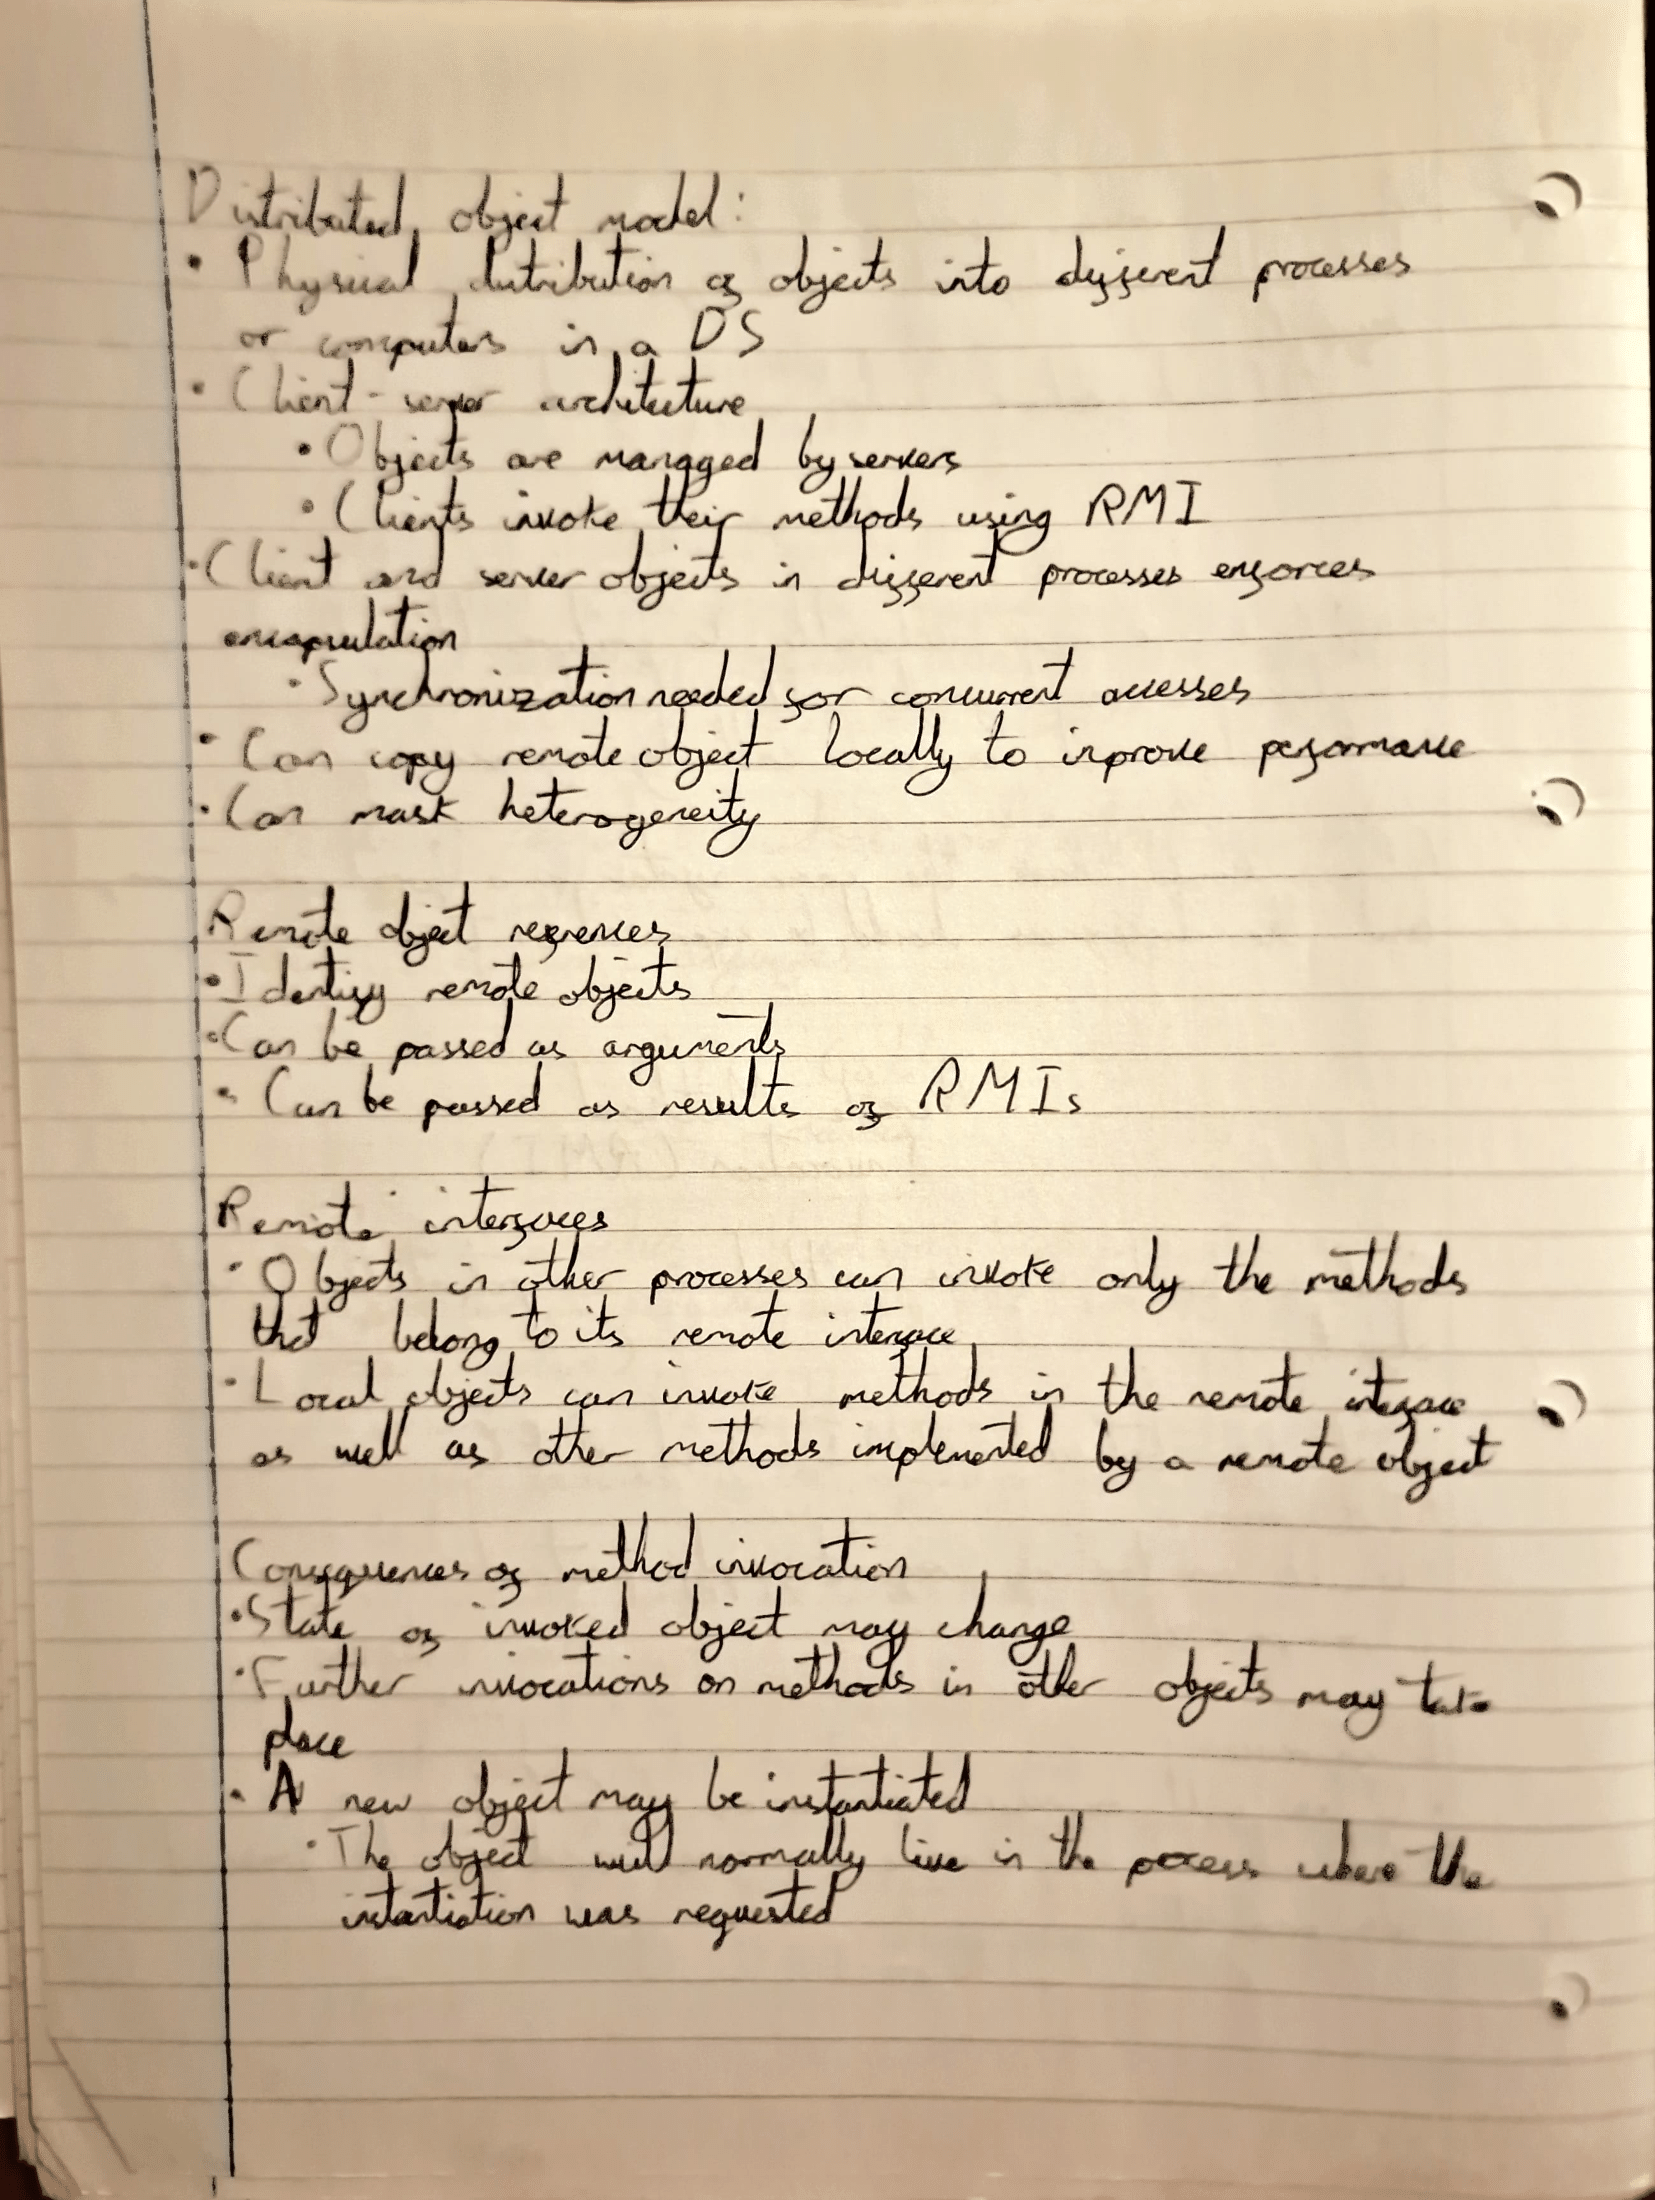 Distributed object model:
• Physical distribution of objects into different processes
or computers in a DS
• Client-server architecture
• Objects are managed by servers
• Clients invoke their methods using RMI
• Client and server objects in different processes enforces
encapsulation
• Synchronization needed for concurrent accesses
• Can copy remote object locally to improve performance
• Can mask heterogeneity
Remote object references
• Identify remote objects
• Can be passed as arguments
• Can be passed as results of RMIs
Remote interfaces
• Objects in other processes can invoke only the methods
that belong to its remote interface
• Local objects can invoke methods in the remote interface
as well as other methods implemented by a remote object
Consequences of method invocation
• State of invoked object may change
• Further invocations on methods in other objects may take
place
• A new object may be instantiated
• The object will normally live in the process where the
instantiation was requested